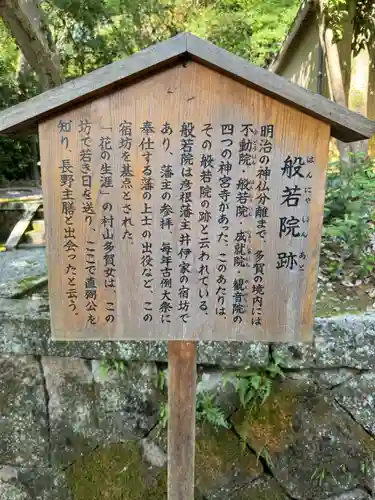 般若院跡
はんにゃいんあと
明治の神仏分離まで、多賀の境内には
不動院・般若院・成就院・観音院の
四つの神宮寺があった。このあたりは、
その般若院の跡と云われている。
般若院は彦根藩主井伊家の宿坊で
あり、藩主の参拝、毎年古例大祭に
奉仕する藩の上士の出役など、この
宿坊を基点とされた。
「花の生涯」の村山多賀女は、この
坊で若き日を送り、ここで直弼公を
知り、長野主膳と出会ったと云う。